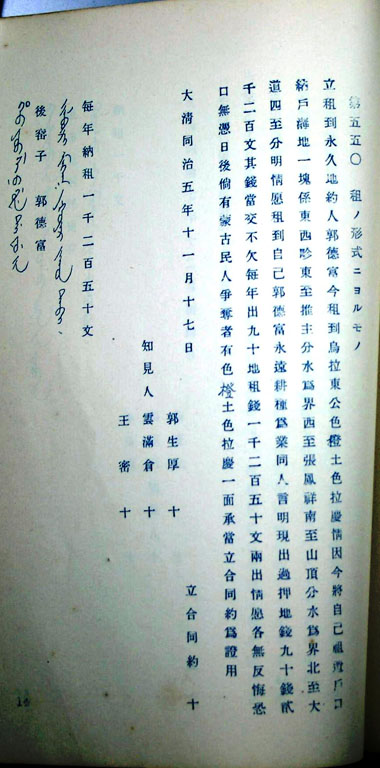 第五五〇 租ノ形式ニヨルモノ
立租到永久地約人郭德富今租到烏拉東公色橙土色拉慶情因今將自己祖遺戶口
納戶 地一塊係東西畛東至推主分水爲界西至張鳳祥南至山頂分水爲界北至大
道四至分明情愿租到自己郭德富永遠耕種爲業同人言明現出過押地錢九十錢貳
千二百文其錢當交不欠每年出九十地租錢一千二百五十文兩出情愿各無反悔恐
口無憑日後倘有蒙古民人爭奪者有色橙土色拉慶一面承當立合同約爲證用
大清同治五年十一月十七日
立合同約 十
郭生厚 十
知見人 雲滿倉 十
王密 十
每年納租一千二百五十文
後窑子 郭德富